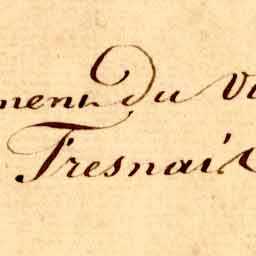 ment du Vi
Fresnais